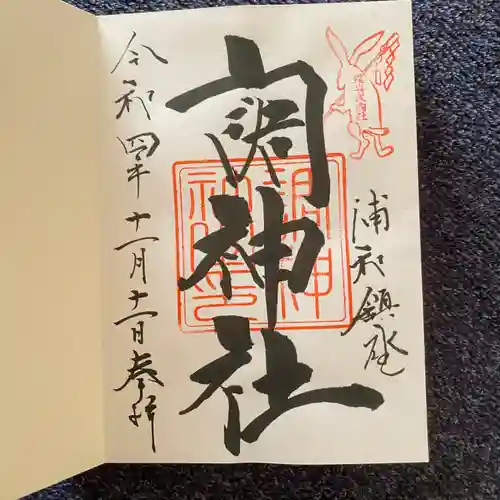 浦和鎮座
調神社
調神
社之印
令和四年十一月十一日奉拝